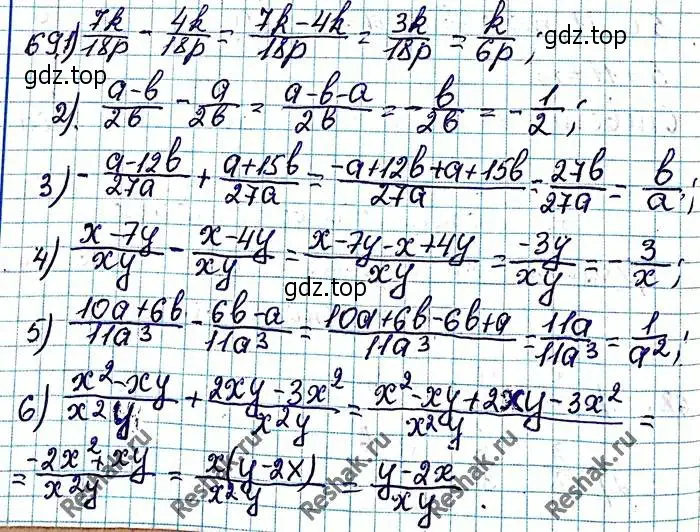 69.1) 7k/18p - 4k/18p = 7k-4k/18p = 3k/18p = k/6p ;
гдз.top
гдз.top
2). a-b/2b - a/2b = a-b-a/2b = - b/2b = - 1/2 ;
3) - a-12b/27a + a+15b/27a = -a+12b+a+15b/27a = 27b/27a = b/a ;
4) x-7y/xy - x-4y/xy = x-7y-x+4y/xy = -3y/xy = - 3/x ;
гдз.top
5) 10a+6b/11a³ - 6b-a/11a³ = 10a+6b-6b+a/11a³ = 11a/11a³ = 1/a² ;
6) x²-xy/x²y + 2xy-3x²/x²y = x²-xy+2xy-3x²/x²y =
= -2x²+xy/x²y = x(y-2x)/x²y = y-2x/xy .
Reshak.ru
Reshak.ru
Reshak.ru
Reshak.ru
гдз.top